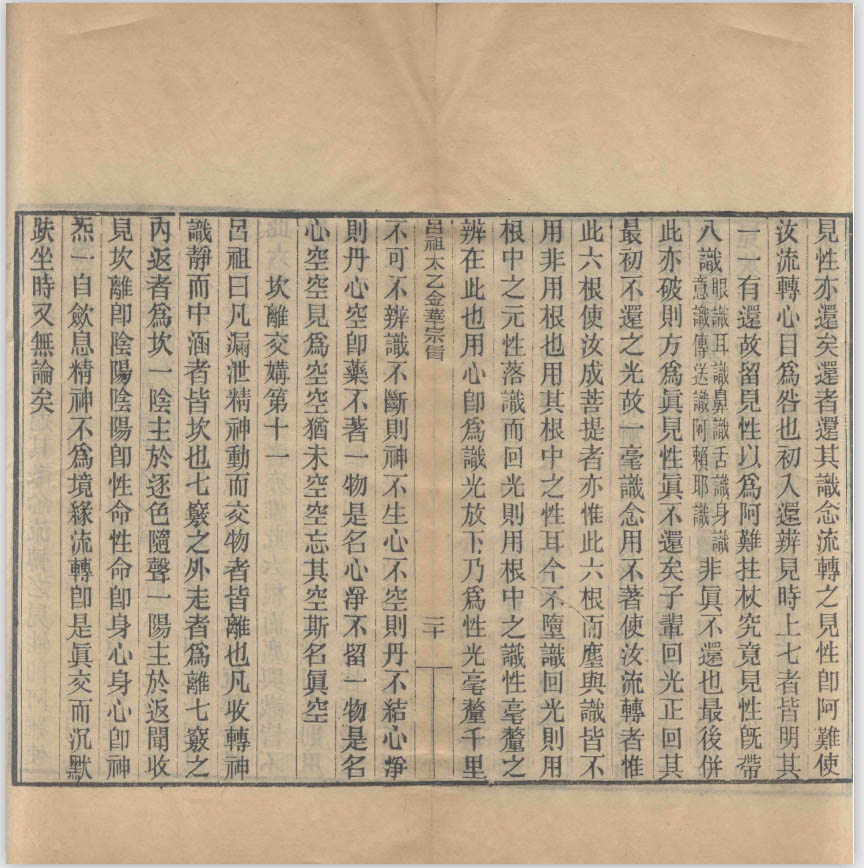 見性亦還矣還者還其識念流轉之見性卽阿難使
汝流轉心目爲咎也初入還辨見時上七者皆明其
一一有還故留見性以爲阿難拄杖究竟見性旣帶
八識眼識耳識鼻識舌識身識意識傳送識阿賴耶識非眞不還也最後併
此亦破則方爲眞見性眞不還矣子輩回光正回其
最初不還之光故一毫識念用不著使汝流轉者惟
此六根使汝成菩提者亦惟此六根而塵與識皆不
用非用根也用其根中之性耳今不墮識回光則用
根中之元性落識而回光則用根中之識性毫釐之
辨在此也用心卽爲識光放下乃爲性光毫釐千里
呂祖太乙金華宗旨
三十
不可不辨識不斷則神不生心不空則丹不結心淨
則丹心空卽藥不著一物是名心淨不留一物是名
心空空見爲空空猶未空空忘其空斯名眞空
坎離交媾第十一
呂祖曰凡漏泄精神動而交物者皆離也凡收轉神
識靜而中涵者皆坎也七竅之外走者爲離七竅之
內返者爲坎一陰主於逐色隨聲一陽主於返聞收
見坎離卽陰陽陰陽卽性命性命卽身心身心卽神
炁一自斂息精神不爲境緣流轉卽是眞交而沉默
趺坐時又無論矣